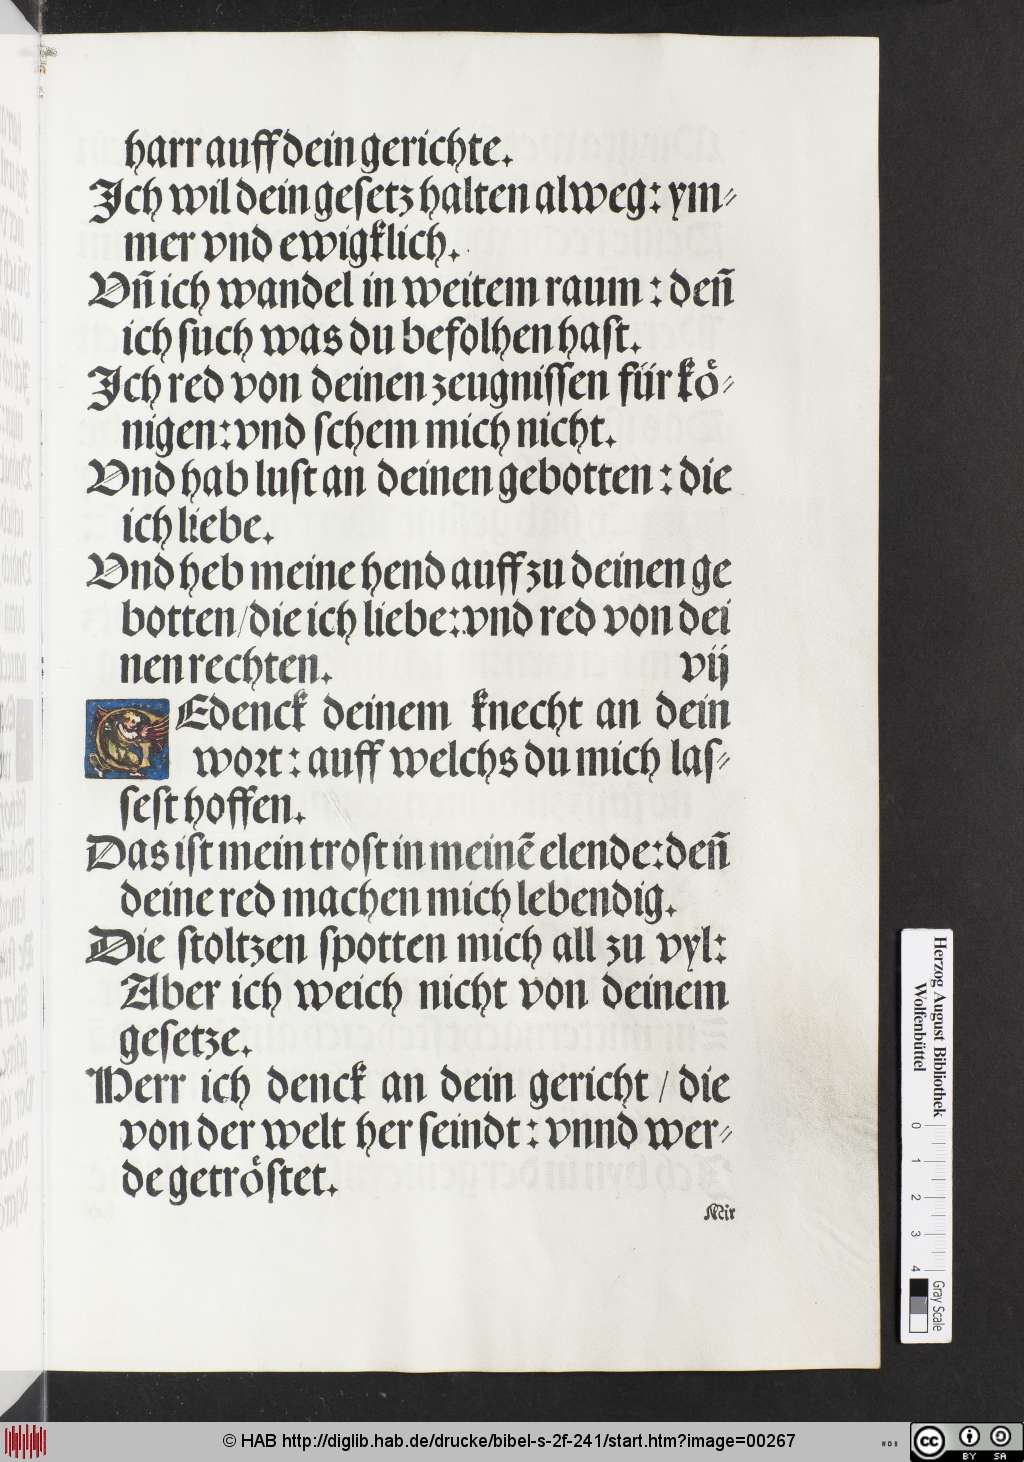 harr auff dein gerichte.
Ich wil dein gesetz halten alweg: ym⸗
mer vnd ewigklich.
Vn̄ ich wandel in weitem raum: den̄
ich such was du befolhen hast.
Ich red von deinen zeugnissen für koͤ⸗
nigen: vnd schem mich nicht.
Vnd hab lust an deinen gebotten: die
ich liebe.
Vnd heb meine hend auff zu deinen ge
botten/ die ich liebe: vnd red von dei
nen rechten. vij
GEdenck deinem knecht an dein
wort: auff welchs du mich las⸗
sest hoffen.
Das ist mein trost in meinē elende: den̄
deine red machen mich lebendig.
Die stoltzen spotten mich all zu vyl:
Aber ich weich nicht von deinem
gesetze.
Herr ich denck an dein gericht / die
von der welt her seindt: vnnd wer⸗
de getroͤstet.
Mir
Herzog August Bibliothek
Wolfenbüttel
0 1 2 3 4
Gray Scale
© HAB http://diglib.hab.de/drucke/bibel-s-2f-241/start.htm?image=00267
WDB
cc BY SA